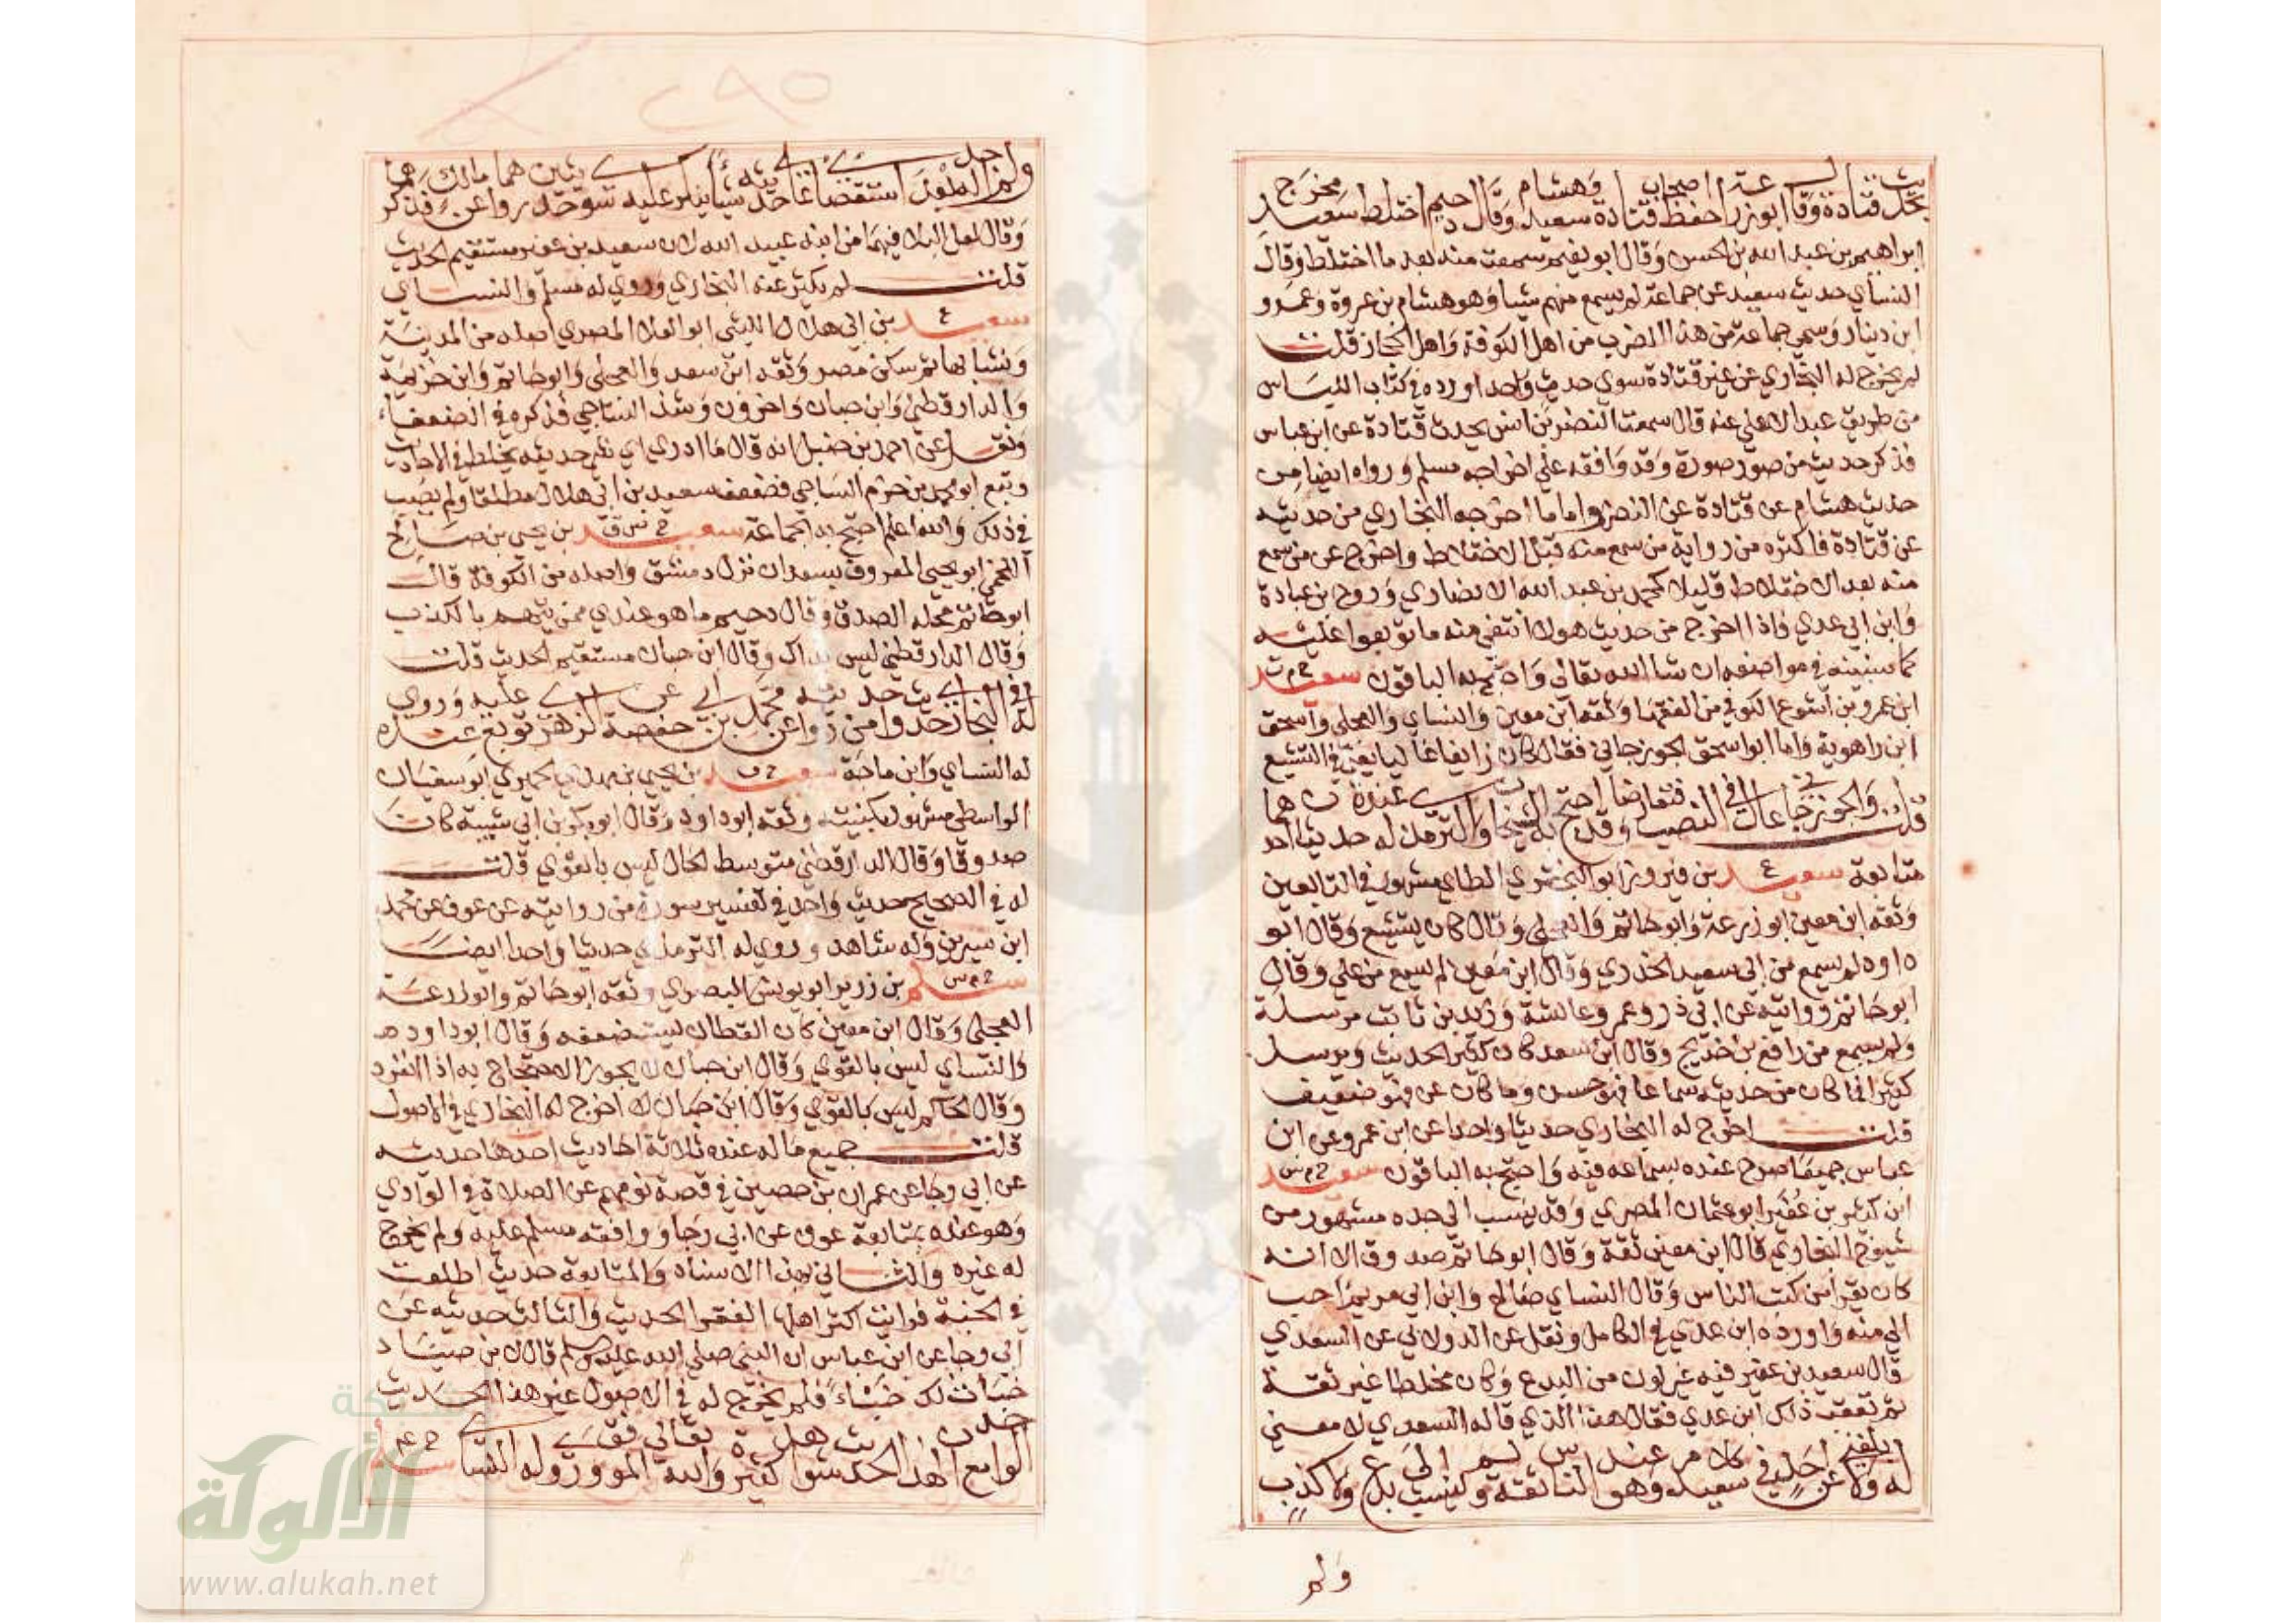 بحديث قتادة وقال ابو زرعة احفظ اصحاب قتادة سعيد وهشام وقال دحيم اختلط سعيد مخرج
ابراهيم بن عبد الله بن الحسن وقال ابو نعيم سمعت منه بعد ما اختلط وقال
النسأي حديث سعيد عن جماعة لم يسمع منهم شيا وهو هشام بن عروة وعمرو
ابن دينار وسمى جماعة من هذا الضرب من اهل الكوفة واهل الحجاز قلت
لم يخرج له البخاري عن غير قتادة سوي حديث واحد اورده في كتاب اللباس
من طريق عبد الاعلي عنه قال سمعت النضر بن انس يحدث قتادة عن ابن عباس
فذكر حديث من صور صورة وقد وافقه علي اخراجه مسلم ورواه ايضا من
حديث هشام عن قتادة عن النضر واما ما اخرجه البخاري من حديثه
عن قتادة فاكثره من رواية من سمع منه قبل الاختلاط واخرج عن من سمع
منه بعد الاختلاط قليلا كمحمد بن عبد الله الانصاري وروح بن عبادة
وابن ابي عدي فاذا اخرج من حديث هولا انتقي منه ما توبعوا عليه
كما سنبينه في مواضعه ان شا الله تعالي واحتج به الباقون سعيد خ م ت
ابن عمرو بن اشوع الكوفي من الفقها وثقه ابن معين والنساي والعجلي واسحق
ابن راهوية واما ابو اسحق الجوزجاني فقال كان زايغا غاليا يعني في التشيع
قلت والجوزجاني غال في النصب فتعارضا وقد احتج به الشيخان والترمذي له عنده حديثان احدهما
متابعة سعيد ع بن فيروز ابو البختري الطاي مشهور في التابعين
وثقه ابن معين وابو زرعة وابو حاتم والعجلي وقال كان يتشيع وقال ابو
داود لم يسمع من ابي سعيد الخدري وقال ابن معين لم يسمع من علي وقال
ابو حاتم روايته عن ابي ذر وعمر وعائشة وزيد بن ثابت مرسلة
ولم يسمع من رافع بن خديج وقال ابن سعد كان كثير الحديث ويرسل
كثيرا فما كان من حديثه سماعا فهو حسن وما كان عن فهو ضعيف
قلت اخرج له البخاري حديثا واحدا عن ابن عمر وعن ابن
عباس جميعا صرح عنده بسماعه فيه واحتج به الباقون سعيد خ م س
ابن كثير بن عُفَير ابو عثمان المصري وقد ينسب الي جده مشهور من
شيوخ البخاري قال ابن معين ثقة وقال ابو حاتم صدوق الا انه
كان يقرا من كتب الناس وقال النساي صالح وابن ابي مريم احب
الي منه واورده ابن عدي في الكامل ونقل عن الدولابي عن السعدي
قال سعيد بن عفير فيه غير لون من البدع وكان مخلطا غير ثقة
ثم تعقب ذلك ابن عدي فقال هذا الذي قاله السعدي لا معني
له ولا بلغني عن احد في سعيد كلام وهو عند الناس ثقة ولم ينسب الي بدع ولا كذب
ولم
٢٩٥
ولم اجد له بعد استقصائي علي حديثه شيأ ينكر عليه سوي حديثين رواهما عن مالك فذكرهما
وقال لعل البلا فيهما من ابنه عبيد الله لان سعيد بن عفير مستقيم الحديث
قلت لم يكثر عنه البخاري وروي له مسلم والنساي
سعيد ع بن ابي هلال الليثي ابو العلا المصري اصله من المدينة
ونشا بها ثم سكن مصر وثقه ابن سعد والعجلي وابو حاتم وابن خزيمة
والدارقطني وابن حبان واخرون وشذ الساجي فذكره في الضعفاء
ونقل عن احمد بن حنبل انه قال ما ادري اي شي حديثه يخلط في الاحاديث
وتبع ابو محمد بن حزم الساجي فضعف سعيد بن ابي هلال مطلقا ولم يصب
في ذلك والله اعلم احتج به الجماعة سعيد خ س ق بن يحيي بن صالح
اللخمي ابو يحيي المعروف بسعدان نزل دمشق واصله من الكوفة قال
ابو حاتم محله الصدق وقال دحيم ما هو عندي ممن يتهم بالكذب
وقال الدارقطني ليس بذاك وقال ابن حبان مستقيم الحديث قلت
له في البخاري حديث واحد من روايته عن محمد بن ابي حفصة عن الزهري توبع عليه وروي
له النساي وابن ماجة سعيد خ ت بن يحيي بن مهدي الحميري ابو سفيان
الواسطي مشهور بكنيته وثقه ابو داود وقال ابو بكر بن ابي شيبة كان
صدوقا وقال الدارقطني متوسط الحال ليس بالقوي قلت
له في الصحيح حديث واحد في تفسير سورة من روايته عن عوف عن محمد
ابن سيرين وله شاهد وروي له الترمذي حديثا واحدا ايضا
سلم خ م س بن زرير ابو يونس البصري وثقه ابو حاتم وابو زرعة
العجلي وقال ابن معين كان القطان يستضعفه وقال ابو داود
والنساي ليس بالقوي وقال ابن حبان لا يجوز الاحتجاج به اذا انفرد
وقال الحاكم ليس بالقوي وقال ابن حبان لا اخرج له البخاري في الاصول
قلت جميع ما له عنده ثلاثة احاديث احدها حديثه
عن ابي رجا عن عمران بن حصين في قصة نومهم عن الصلاة في الوادي
وهو عنده بمتابعة عوف عن ابي رجا ووافقه مسلم عليه ولم يخرج
له غيره والثاني بهذا الاسناد والمتابعة حديث اطلعت
في الجنة فرايت اكثر اهلها الفقرا الحديث والثالث حديثه عن
ابي رجا عن ابن عباس ان النبي صلي الله عليه وسلم قال لابن صياد
خبأت لك خبئاً فلم يخرج له في الاصول غير هذا الحديث